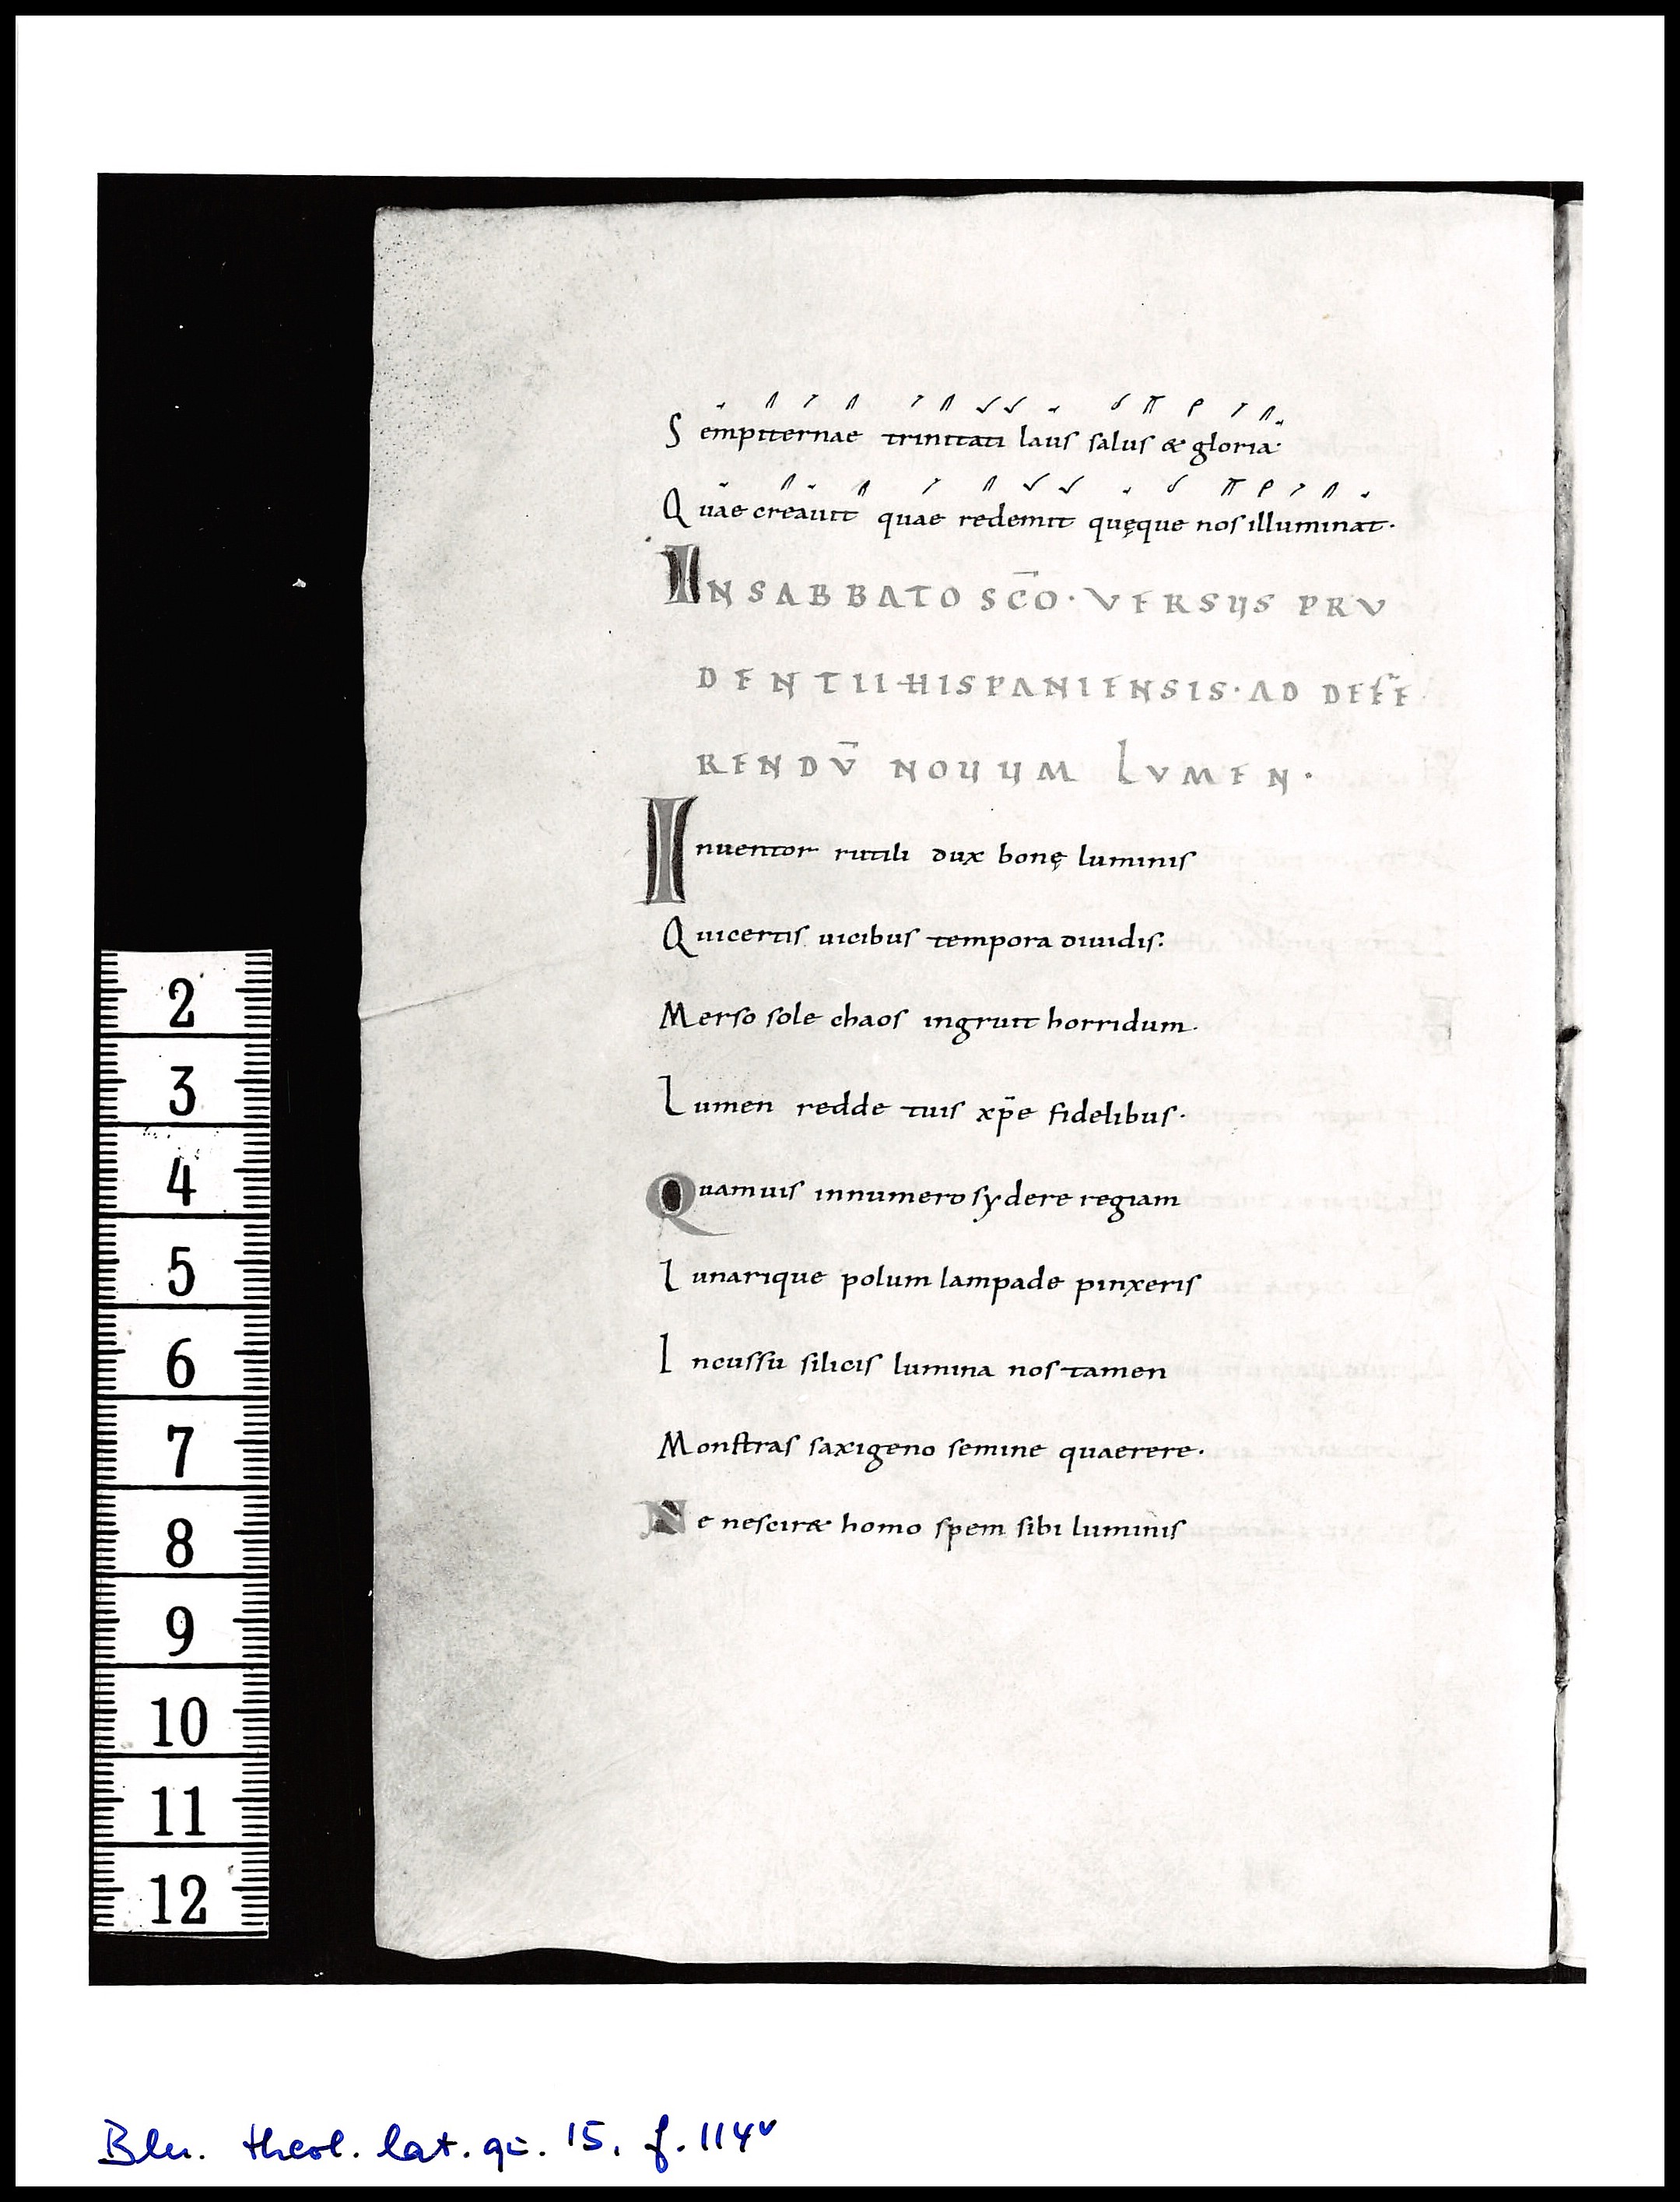 Sempiternae trinitati laus salus & gloria:
Quae creauit quae redemit quęque nos illuminat.
IN SABBATO SC̄O. VERSUS PRV
DENTII HISPANIENSIS. AD DEFE
RENDV̄ NOUUM LVMEN.
Inuentor rutili dux bonę luminis
Qui certis uicibus tempora diuidis:
Merso sole chaos ingruit horridum.
Lumen redde tuis xp̄e fidelibus.
Quamuis innumero sydere regiam
Lunarique polum lampade pinxeris
Incussu silicis lumina nos tamen
Monstras saxigeno semine quaerere.
Ne nescir& homo spem sibi luminis
2
3
4
5
6
7
8
9
10
11
12
Bln. theol. lat. qu. 15, f. 114v